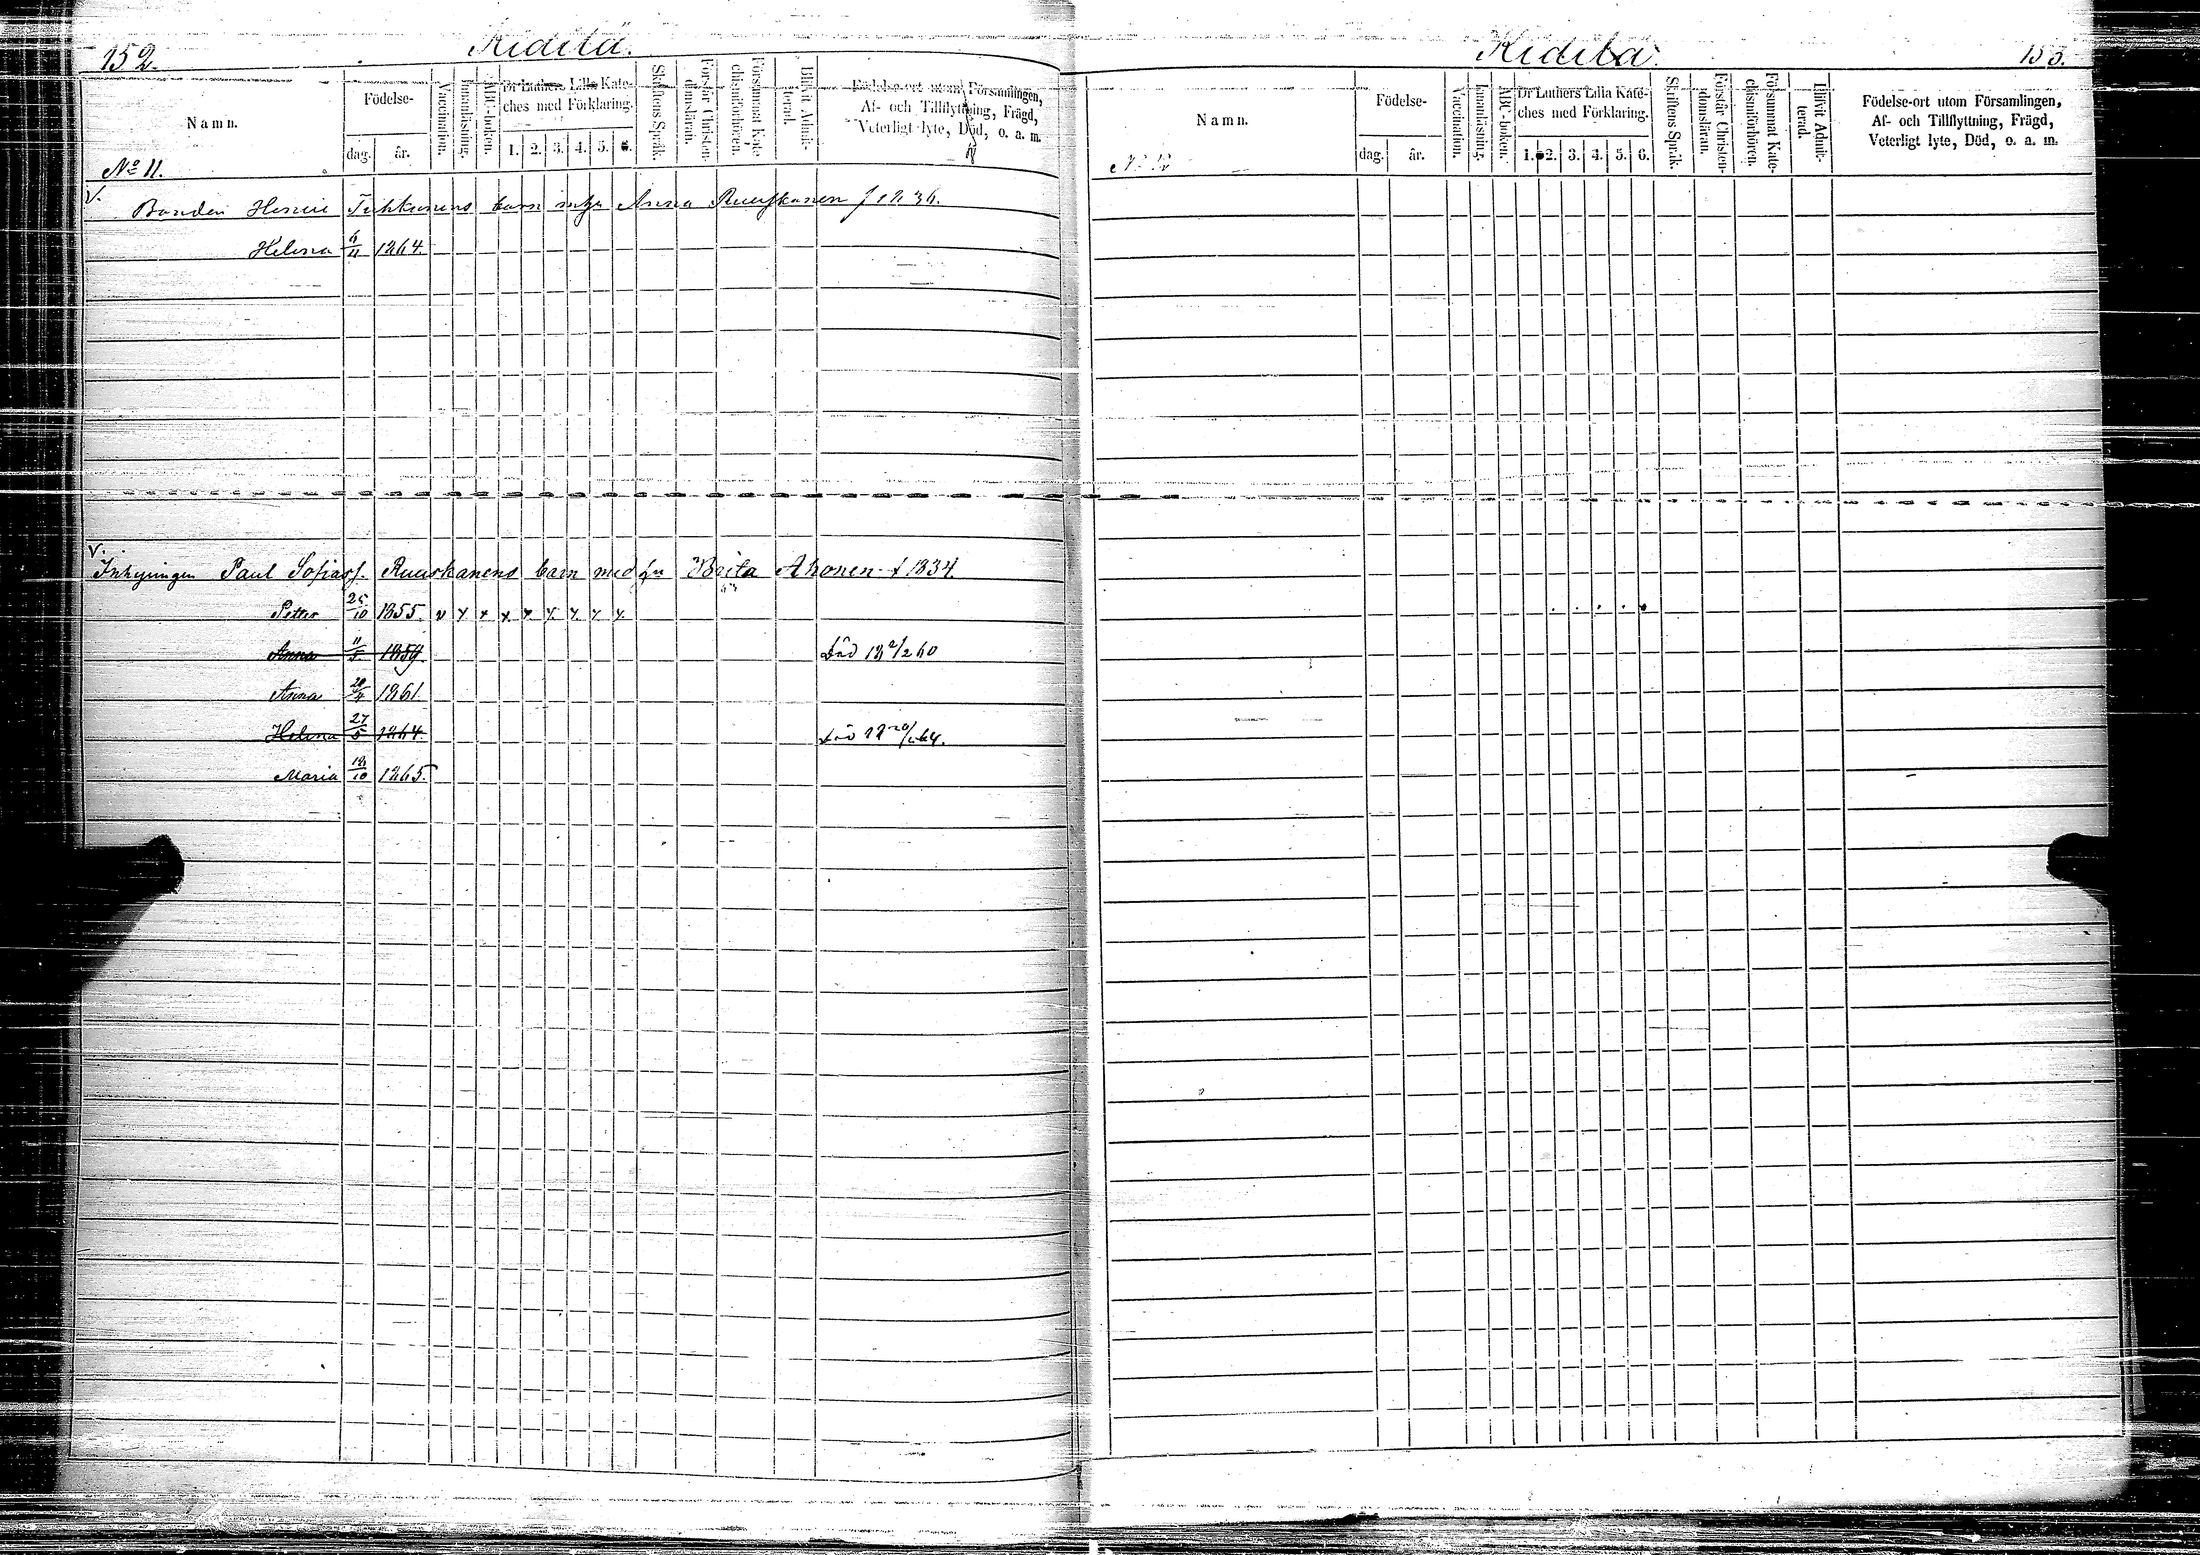 152.
Kidilä.
Namn.
Födelse-
dag.
år.
Vaccination.
Innanläsning.
ABC-boken.
Dr Luthers Lilla Kate-
ches med Förklaring.
1. 2. 3. 4. 5. 6.
Skriftens Språk.
Förstår Christen-
domsläran.
Försummat Kate-
chismiförhören.
Blifvit Admit-
terad.
Födelse-ort utom Församlingen,
Af- och Tillflyttning, Frägd,
Veterligt lyte, Död, o. a. m.
No 11.
v.
Bonden Henric Tuhkanens barn Anna Ruuskanen f 1836.
Helena 6/11 1864.
v.
Inhysingen Paul Sofiass. Ruuskanens barn med hu Brita Ahonen f 1834.
Petter 25/10 1855. v x x x x x x x x
Anna 11/5 1859. Död 18 2/2 60
Anna 20/4 1861.
Helena 27/5 1864. Död
Maria 18/10 1865.
Kidilä.
153.
Namn.
Födelse-
dag.
år.
Vaccination.
Innanläsning.
ABC-boken.
Dr Luthers Lilla Kate-
ches med Förklaring.
1. 2. 3. 4. 5. 6.
Skriftens Språk.
Förstår Christen-
domsläran.
Försummat Kate-
chismiförhören.
Blifvit Admit-
terad.
Födelse-ort utom Församlingen,
Af- och Tillflyttning, Frägd,
Veterligt lyte, Död, o. a. m.
No 12